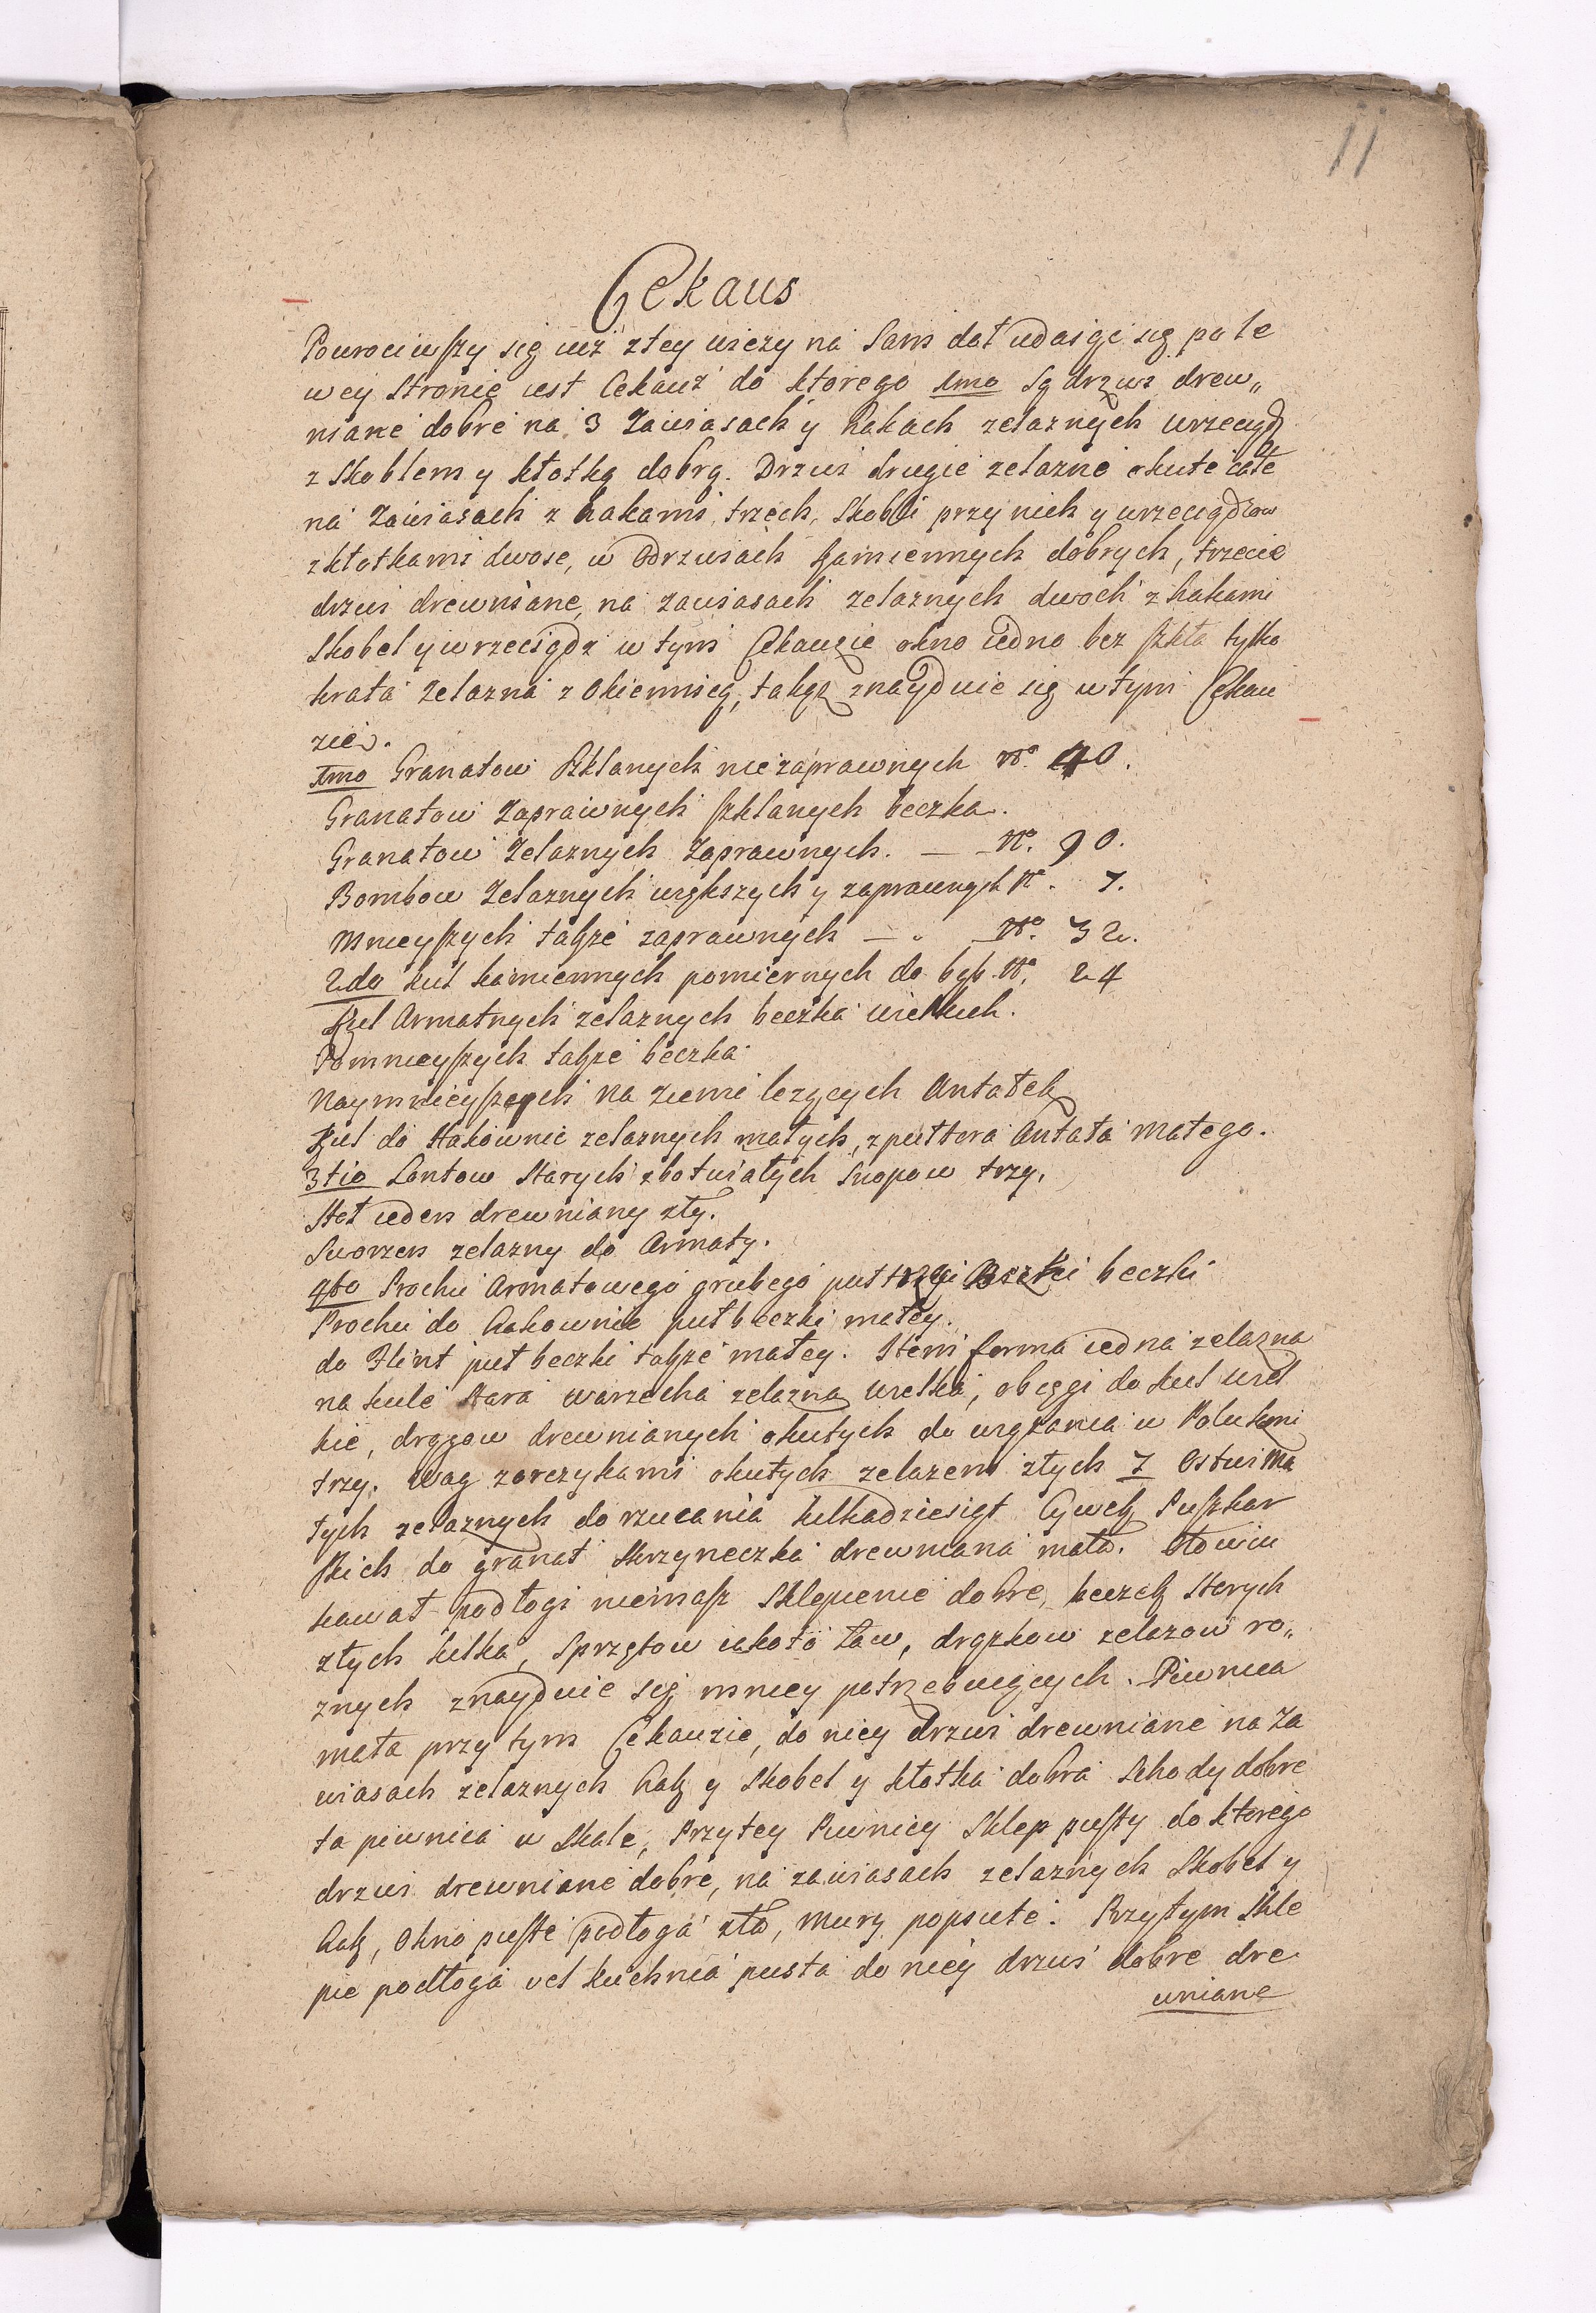 11
Cekaus
Powrociwszy się iuż z tey wieży na Sam doł udaiąć się po le
wey stronie iest Cekauz do ktorego 1mo Są drzwi drew„
niane dobre na 3 Zawiasach y hakach zelaznych wrzeciądz
z Skoblem y kłotką dobrą. Drzwi drugie zelazne okute całe
na Zawiasach z hakami trzech, Skobli przy nich y wrzeciądzow
z kłotkami dwoie, w Odrzwiach kamiennych dobrych, trzecie
drzwi drewniane, na zawiasach zelaznych dwoch z hakami
Skobel y wrzeciądz w tym Cekauzie okno iedno bez szkła tylko
krata zelazna z Okiennicą, także znayduie się w tym Cekau
zie.
1mo Granatow Szklanych nie zaprawnych No. 40.
Granatow Zaprawnych szklanych beczka.
Granatow Zelaznych Zaprawnych. — No. 90.
Bombow Zelaznych większych y zaprawnych No. 7.
Mnieyszych także zaprawnych — No. 32.
2do kul kamiennych pomiernych do bęb. No. 24
Kul Armatnych zelaznych beczka wielkich.
Pomnieyszych także beczka
Naymnieyszych na ziemi leżących Antałek
Kul do Hakownic zelaznych małych, z pułtora Antała małego.
3tio Lontow starych zbotwiałych Snopow trzy.
Stoł ieden drewniany zły.
Sworzen zelazny do Armaty.
4to Prochu Armatowego grubego puł trzeci beczki
Prochu do hakownic puł beczki małey.
do Flint puł beczki także małey. Item forma iedna zelazna
na kule stara warzecha zelazna wielka, obcęgi do kul wiel
kie, drągow drewnianych okutych do
trzy. Wag z orczykami okutych zelazem złych 7 Ostwi ma
łych zelaznych do rzucania kilkadziesiąt Cywek Puszkar
skich do granat skrzyneczka drewniana mała. Ołowiu
kawał podłogi niemasz Sklepienie dobre, beczek starych
złych kilka, Sprzętow iakoto Ław, drążkow zelazow ro„
znych znayduie się mniey potrzebuiących. Piwnica
mała przy tym Cekauzie, do niey drzwi drewniane na Za
wiasach zelaznych hak y Skobel y kłotka dobra Schody dobre
ta piwnica w Skale, Przy tey Piwnicy Sklep pusty do ktorego
drzwi drewniane dobre, na zawiasach zelaznych Skobel y
hak, Okno puste podłoga zła, mury popsute. Przy tym Skle
pie podłoga vel kuchnia pusta do niey drzwi dobre dre
wniane